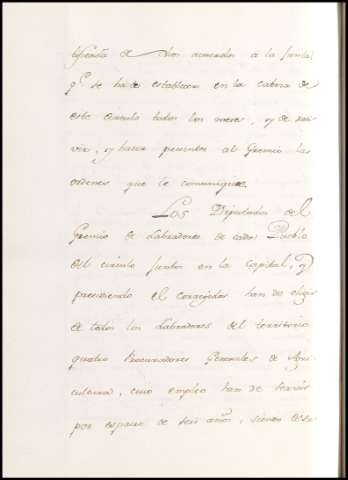 tificasn de dhos acuerdos à la Junta,
qe. se ha de establecer en la cabeza de
este circulo todos los meses, y de reci
vir, y hacer presentes al Gremio las
ordenes que le comuniquen.
Los Diputados del
Gremio de Labradores de cada Pueblo
del circulo juntos en la capital, y
presidiendo el corregidor han de elegir
de todos los Labradores del territorio
quatro Procuradores Generales de Agri
cultura, cuio empleo han de servir
por espacio de seis años, siendo de su